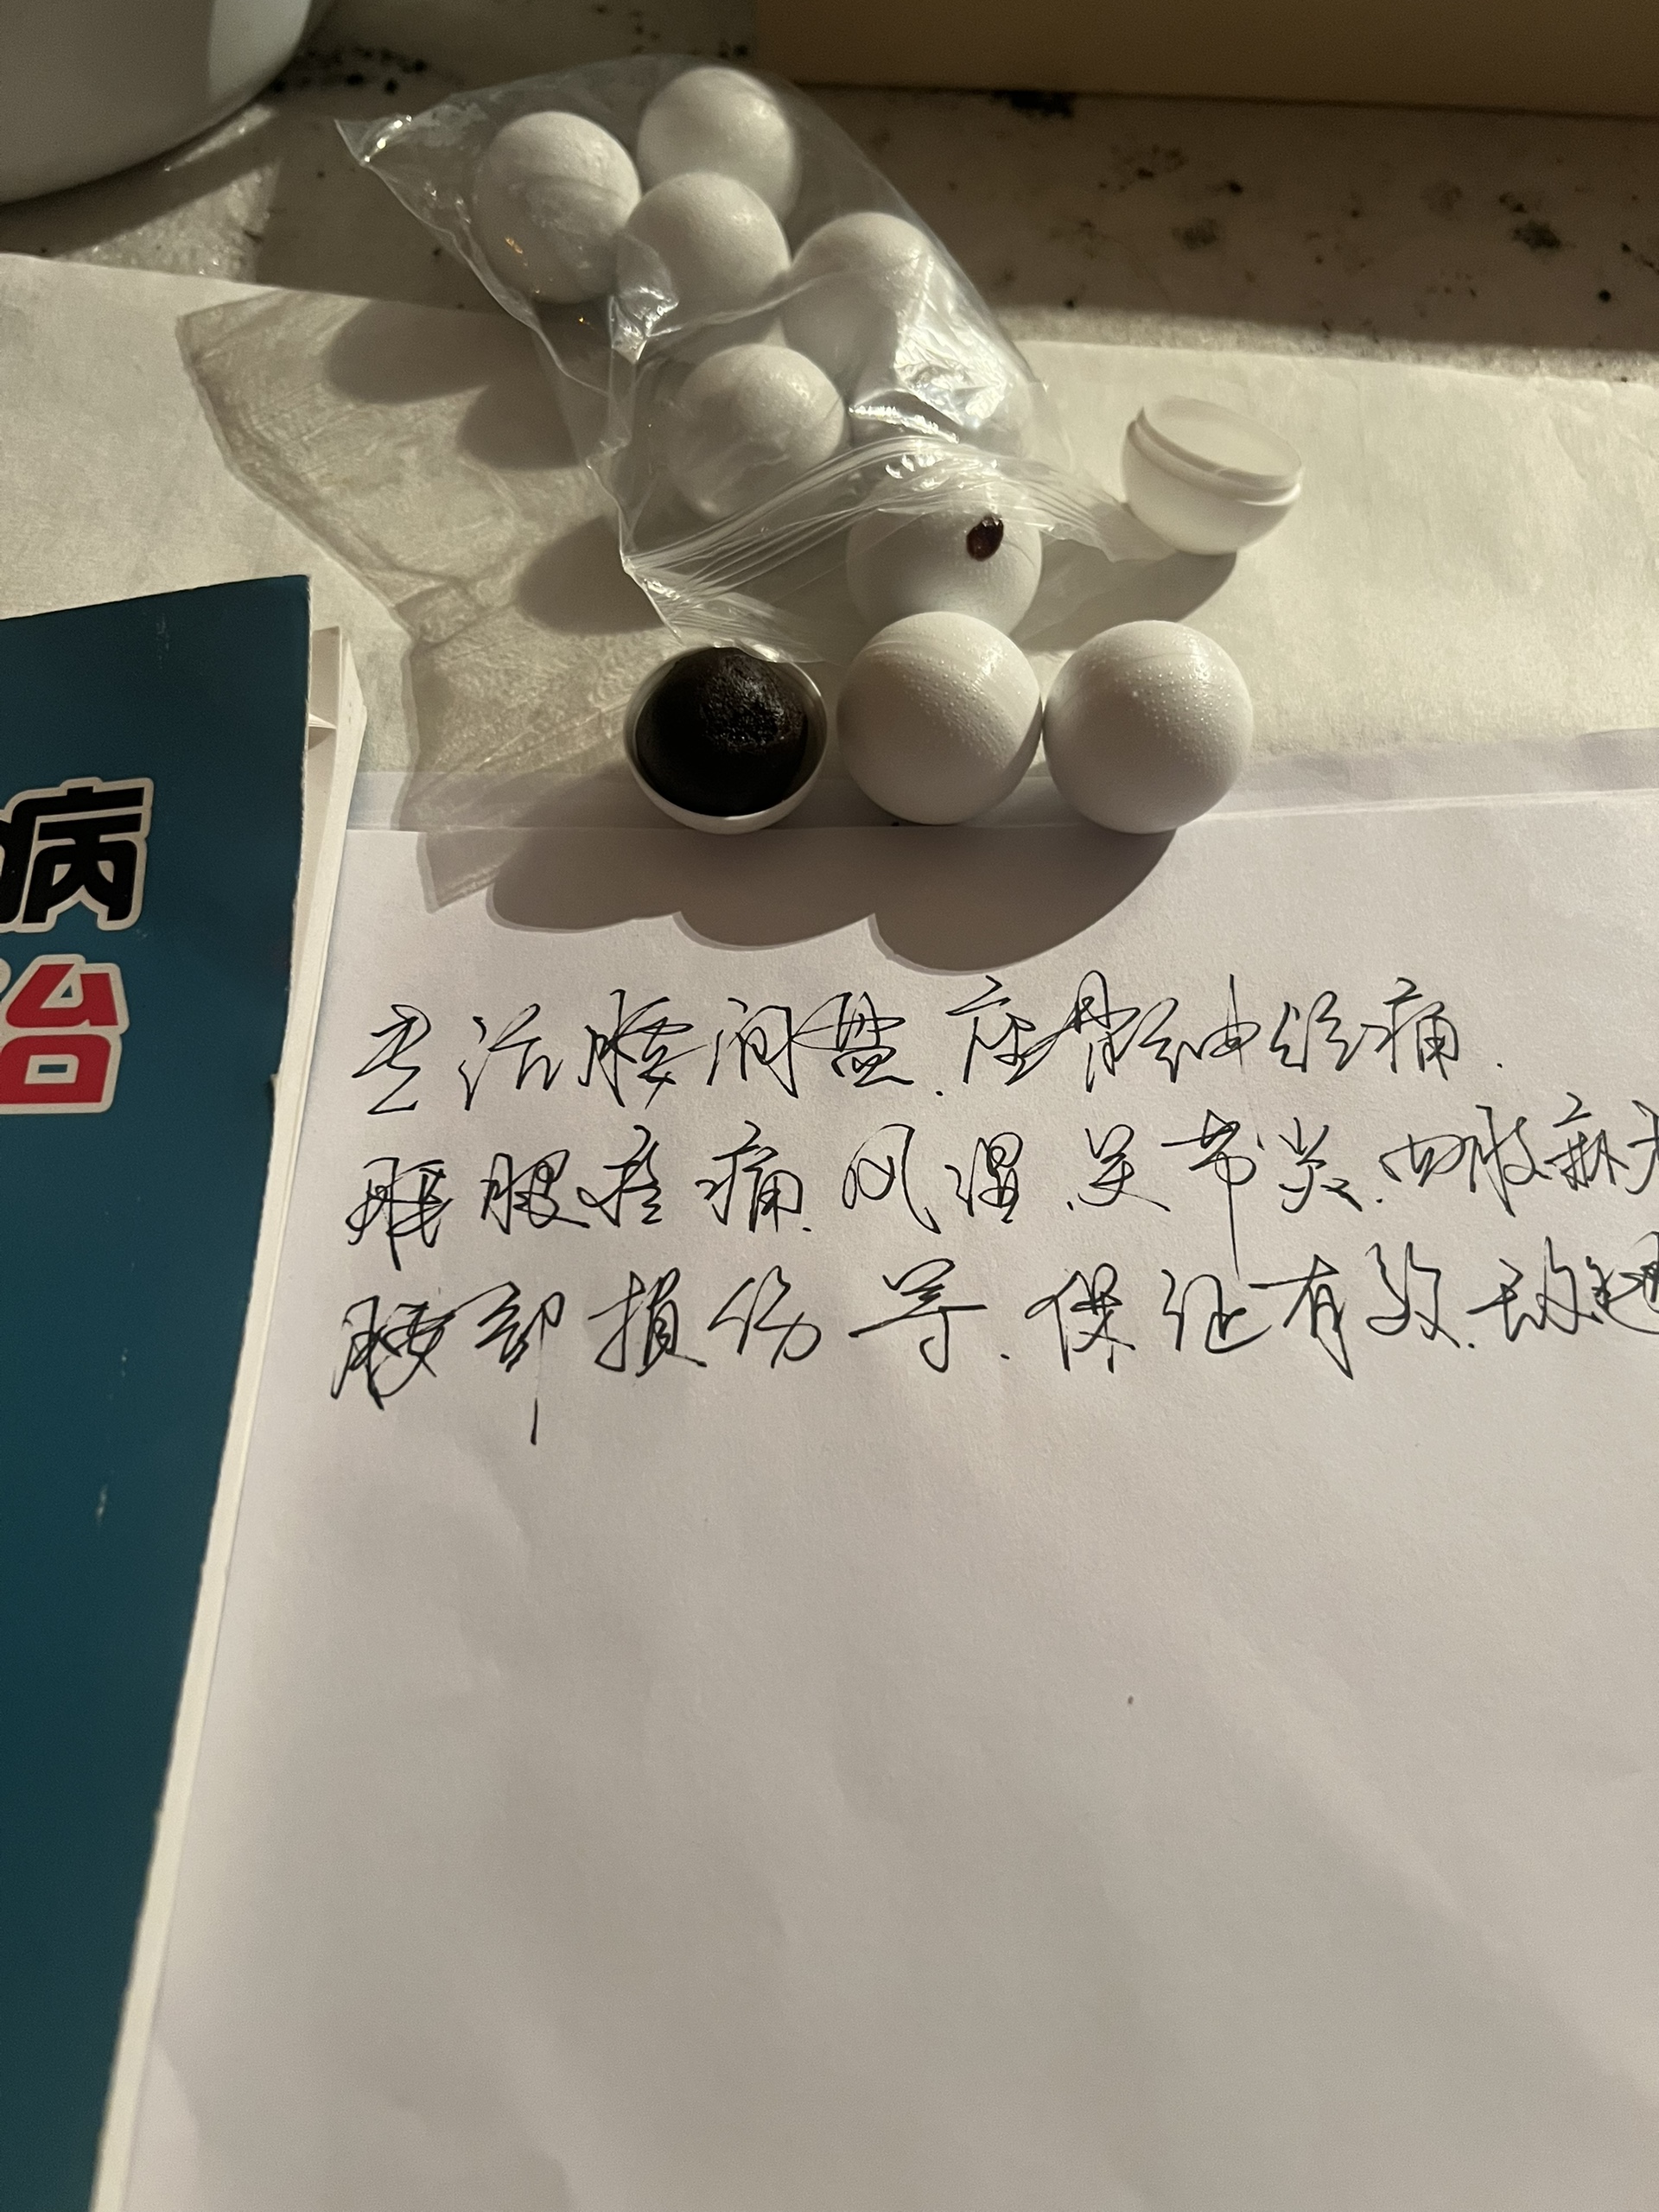 病
治
主治腰间盘.座骨神经痛.
腰腿疼痛.风湿.关节炎.四肢麻木
腰部损伤等.保证有效.无效退